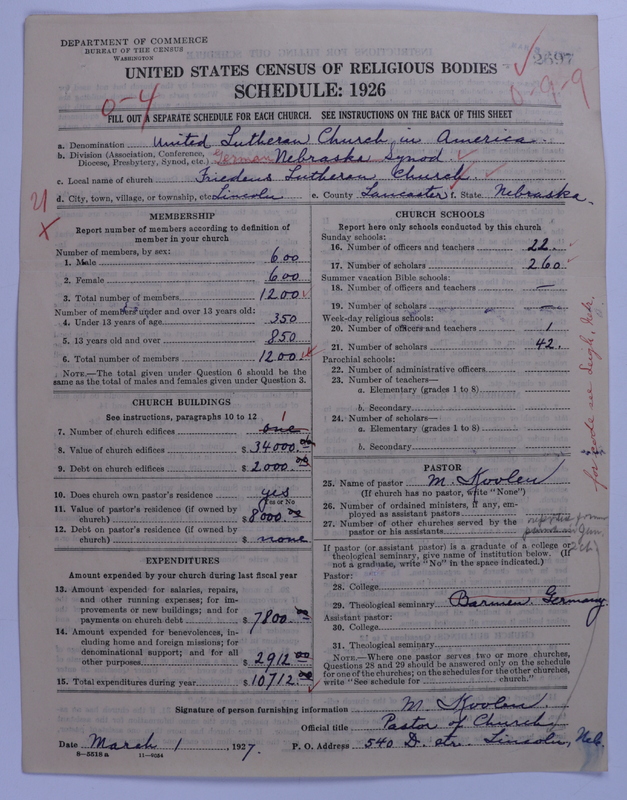 DEPARTMENT OF COMMERCE
BUREAU OF THE CENSUS
WASHINGTON
2697
UNITED STATES CENSUS OF RELIGIOUS BODIES
SCHEDULE: 1926
0-4
0-9-9
FILL OUT A SEPARATE SCHEDULE FOR EACH CHURCH. SEE INSTRUCTIONS ON THE BACK OF THIS SHEET
a. Denomination United Lutheran Church in America
b. Division (Association, Conference, Diocese, Presbytery, Synod, etc.) German Nebraska Synod
c. Local name of church Friedens Lutheran Church
d. City, town, village, or township, etc. Lincoln e. County Lancaster f. State Nebraska.
MEMBERSHIP
Report number of members according to definition of
member in your church
Number of members, by sex:
1. Male 600
2. Female 600
3. Total number of members 1200
Number of members under and over 13 years old:
4. Under 13 years of age 350
5. 13 years old and over 850
6. Total number of members 1200
NOTE.—The total given under Question 6 should be
same as the total of males and females given under Question 3.
CHURCH BUILDINGS
See instructions, paragraphs 10 to 12
7. Number of church edifices one 1
8. Value of church edifices $ 34000.00
9. Debt on church edifices $ 2000.00
10. Does church own pastor's residence yes
Yes or No
11. Value of pastor's residence (if owned by
church) $ 8000.00
12. Debt on pastor's residence (if owned by
church) $ none
EXPENDITURES
Amount expended by your church during last fiscal year
13. Amount expended for salaries, repairs,
and other running expenses; for im-
provements or new buildings; and for
payments on church debt $ 7800.00
14. Amount expended for benevolences, in-
cluding home and foreign missions; for
denominational support; and for all
other purposes $ 2912.00
15. Total expenditures during year $ 10712.00
CHURCH SCHOOLS
Report here only schools conducted by this church
Sunday schools:
16. Number of officers and teachers 22
17. Number of scholars 260
Summer vacation Bible schools:
18. Number of officers and teachers —
19. Number of scholars —
Week-day religious schools:
20. Number of officers and teachers 1
21. Number of scholars 42.
Parochial schools:
22. Number of administrative officers
23. Number of teachers—
a. Elementary (grades 1 to 8)
b. Secondary
24. Number of scholars—
a. Elementary (grades 1 to 8)
b. Secondary
PASTOR
25. Name of pastor M. Koolen
(If church has no pastor, write "None")
26. Number of ordained ministers, if any, em-
ployed as assistant pastors
27. Number of other churches served by the
pastor or his assistants
If pastor (or assistant pastor) is a graduate of a college or
theological seminary, give name of institution below. (If
not a graduate, write "No" in the space indicated.)
Pastor:
28. College
29. Theological seminary Barmen Germany
Assistant pastor:
30. College
31. Theological seminary
NOTE.—Where one pastor serves two or more churches,
Questions 28 and 29 should be answered only on the schedule
for one of the churches; on the schedules for the other churches,
write "See schedule for church."
Signature of person furnishing information M. Koolen
Official title Pastor of Church
Date March 1, 1927. P. O. Address 540 D. str. Lincoln, Neb.
8—5518 a 11—9054